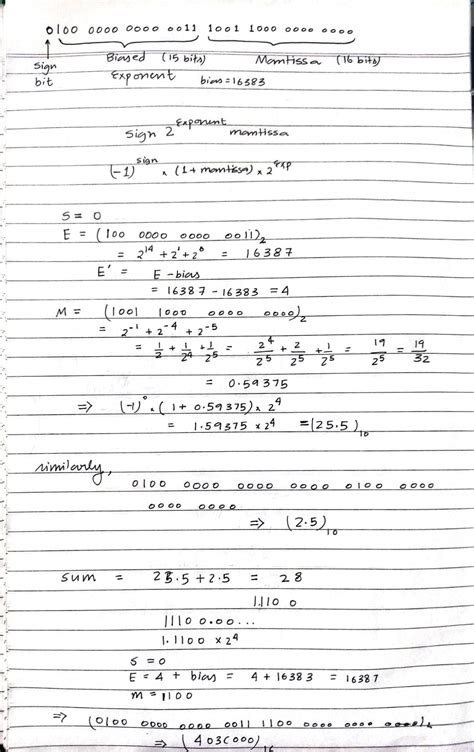 0100 0000 0000 0011 1001 1000 0000 0000
Sign bit Biased (15 bits) Mantissa (16 bits)
Exponent bias = 16383
Sign 2^Exponent mantissa
(-1)^sign × (1 + mantissa) × 2^Exp
S = 0
E = (100 0000 0000 0011)₂
= 2^14 + 2^1 + 2^0 = 16387
E' = E - bias
= 16387 - 16383 = 4
M = (1001 1000 0000 0000)₂
= 2^-1 + 2^-4 + 2^-5
= 1/2 + 1/2^4 + 1/2^5 = 2^4/2^5 + 2/2^5 + 1/2^5 = 19/2^5 = 19/32
= 0.59375
⇒ (-1)^0 × (1 + 0.59375) × 2^4
= 1.59375 × 2^4 = (25.5)₁₀
similarly,
0100 0000 0000 0000 0100 0000
0000 0000
⇒ (2.5)₁₀
Sum = 25.5 + 2.5 = 28
1.110 0
1110 0.00...
1.1100 × 2^4
S = 0
E = 4 + bias = 4 + 16383 = 16387
m = 1100
⇒ (0100 0000 0000 0011 1100 0000 0000 0000)₂
⇒ (403C000)₁₆